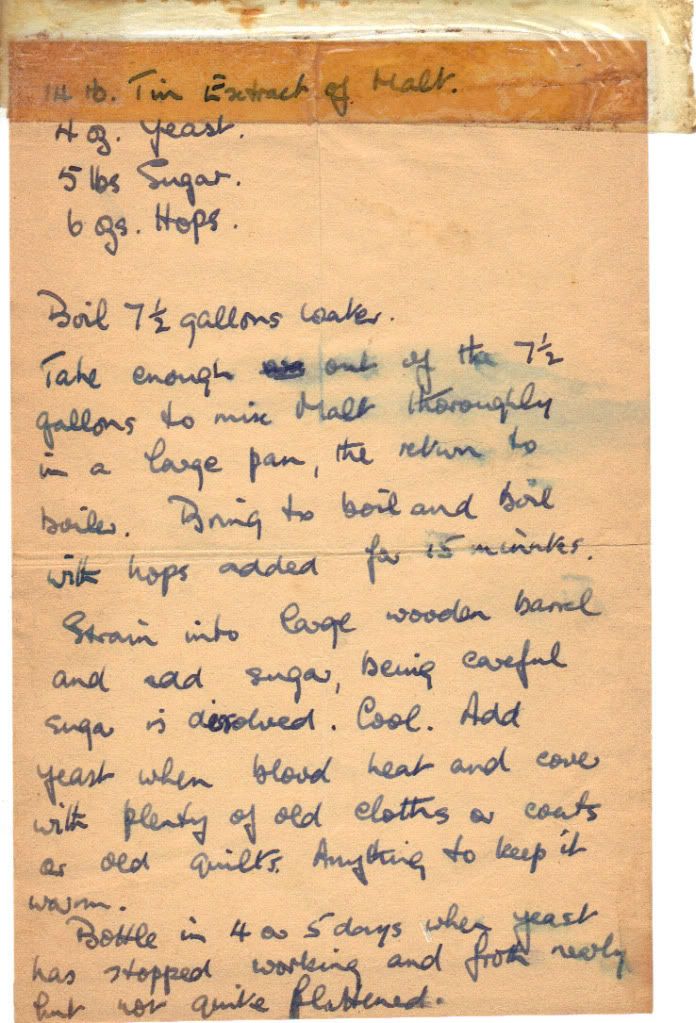 14 lb. Tin Extract of Malt.
4 oz. Yeast.
5 lbs Sugar.
6 ozs. Hops.
Boil 7½ gallons water.
Take enough out of the 7½
gallons to mix Malt thoroughly
in a large pan, the return to
boiler. Bring to boil and boil
with hops added for 15 minutes.
Strain into large wooden barrel
and add sugar, being careful
sugar is dissolved. Cool. Add
yeast when blood heat and cover
with plenty of old cloths or coats
or old quilts. Anything to keep it
warm.
Bottle in 4 or 5 days when yeast
has stopped working and froth nearly
but not quite flattened.